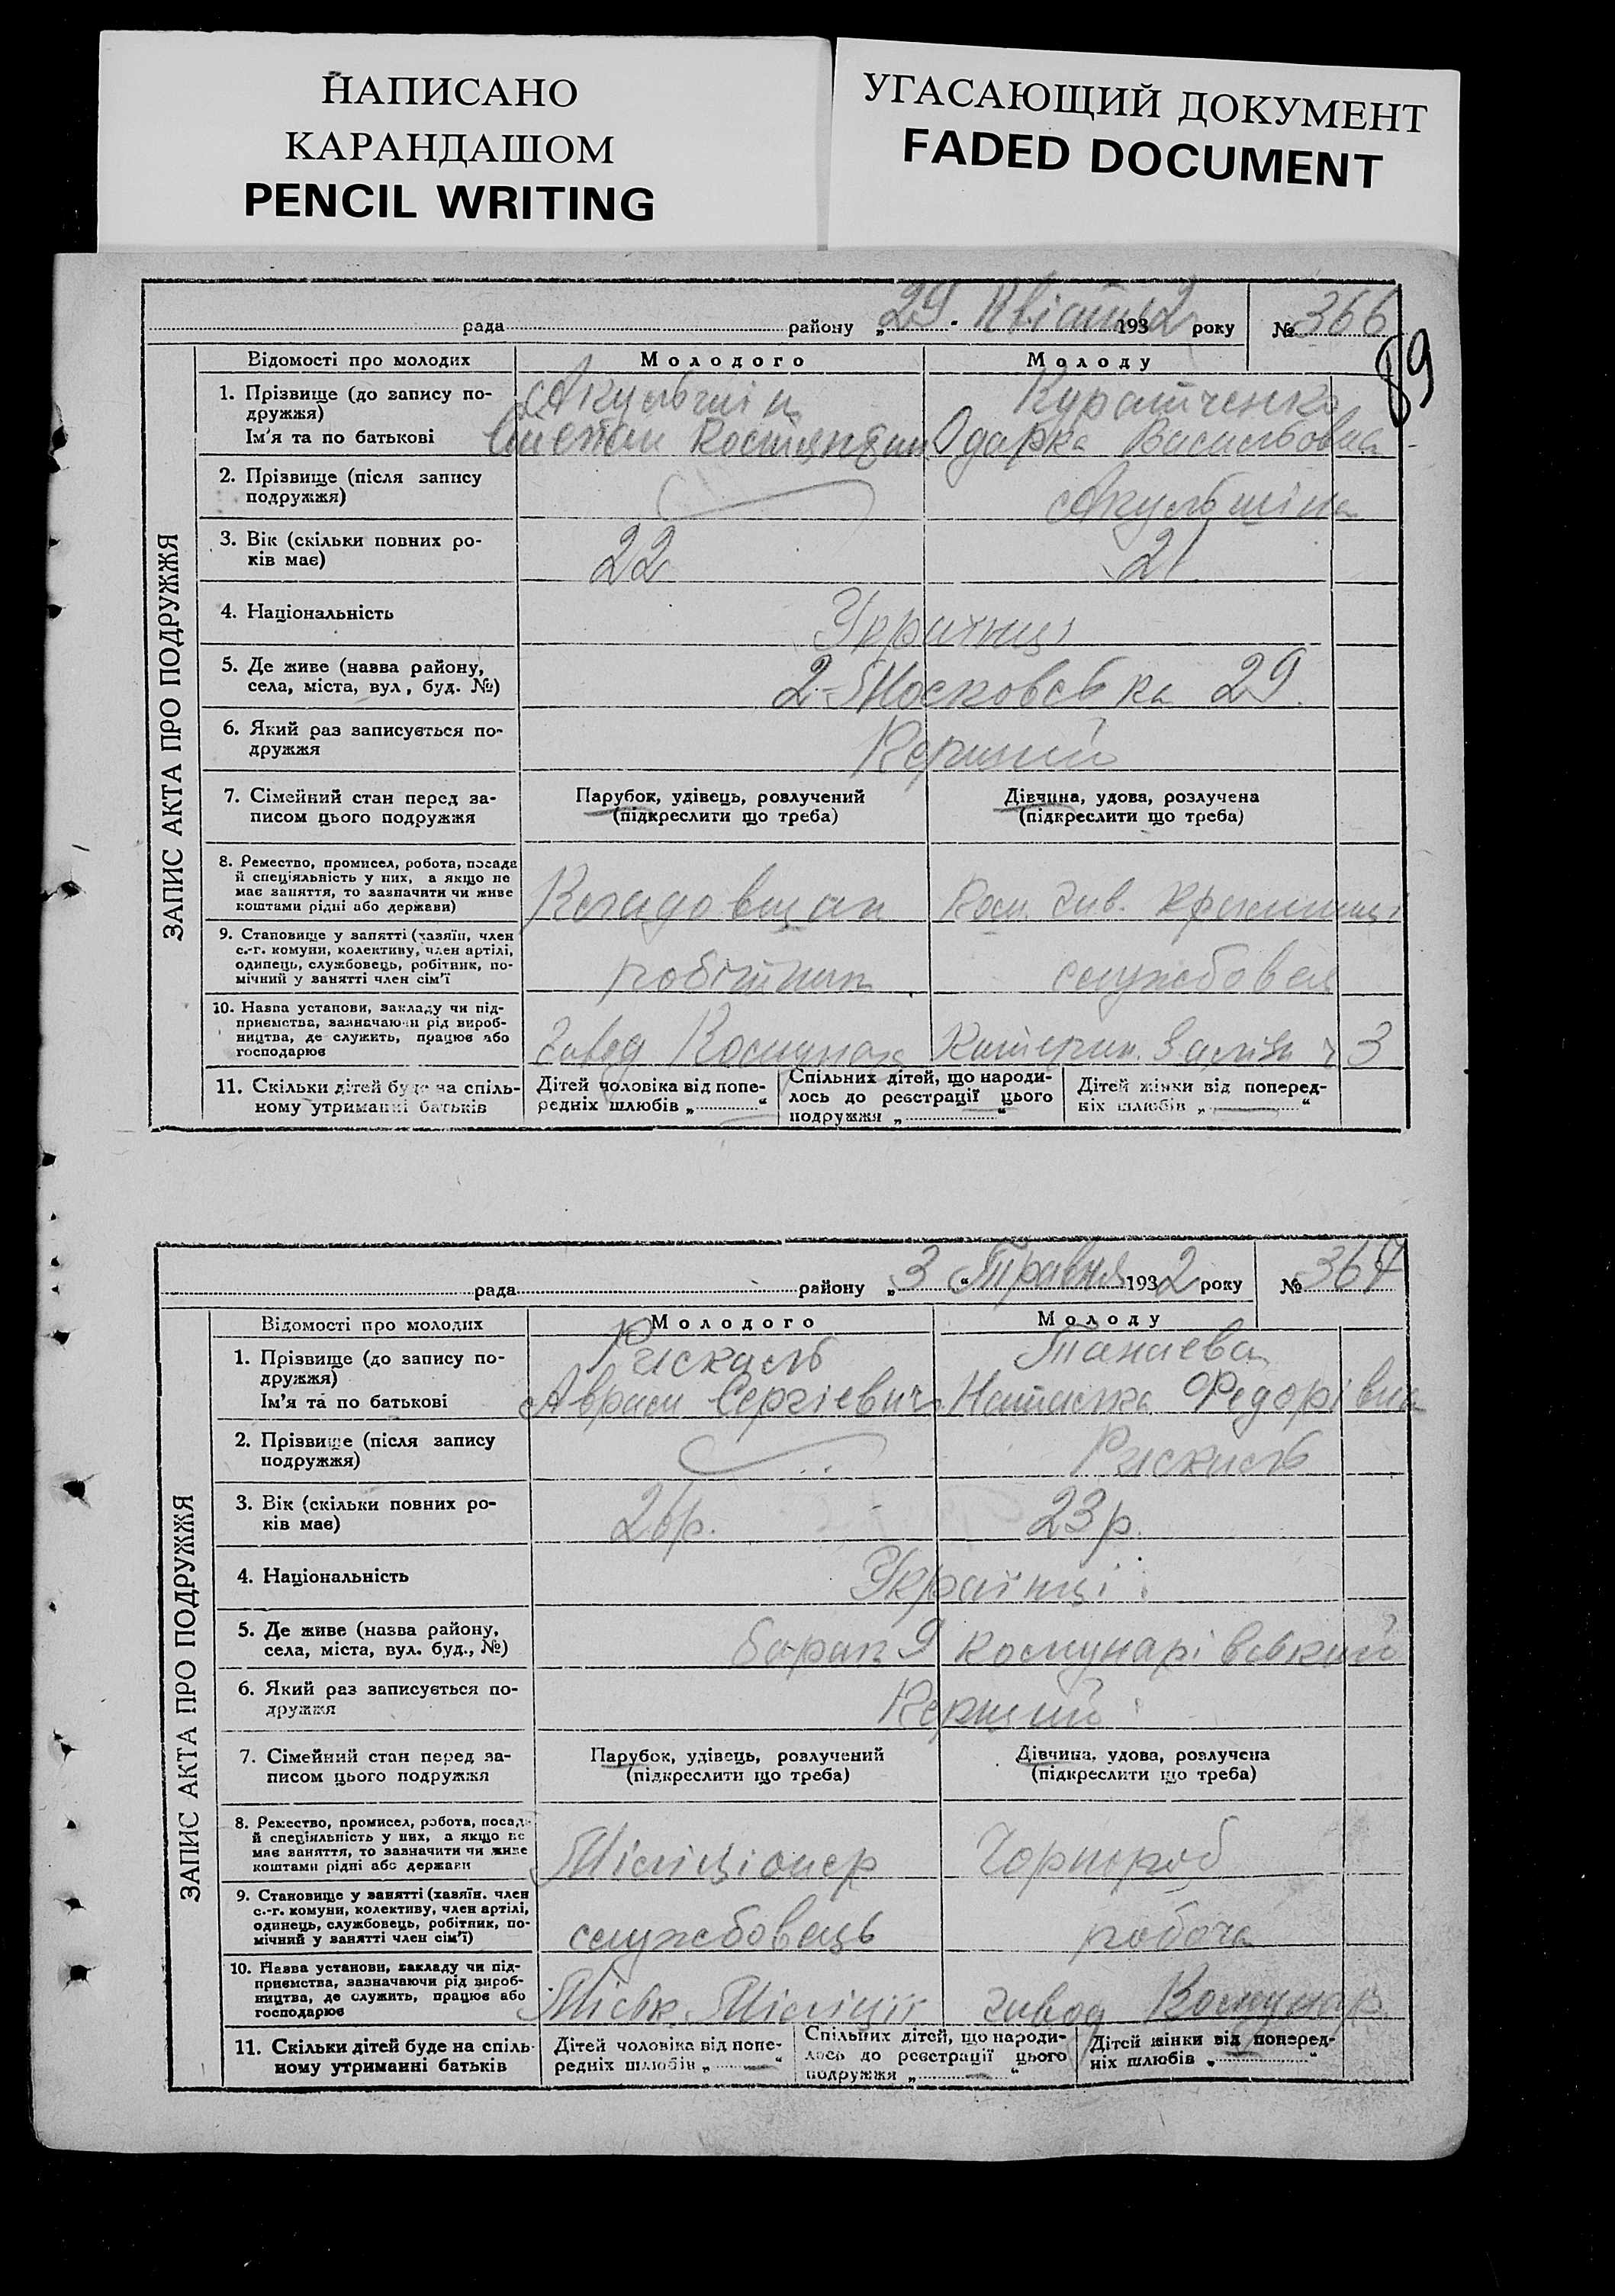 НАПИСАНО
КАРАНДАШОМ
PENCIL WRITING
УГАСАЮЩИЙ ДОКУМЕНТ
FADED DOCUMENT
рада районУ „29. Квітня 1932 року № 366
89
ЗАПИС АКТА ПРО ПОДРУЖЖЯ
Відомості про молодих Молодого Молоду
1. Прізвище (до запису по-
дружжя)
Ім'я та по батькові
Акульшін
Степан
Одарка Васильовна
2. Прізвище (після запису
подружжя)
Акульшіна
3. Вік (скільки повних ро-
ків має)
22 21
4. Національність
Українці
5. Де живе (назва району,
села, міста, вул, буд. №)
2-Московська 29
6. Який раз записується по-
дружжя
Перший
7. Сімейний стан перед за-
писом цього подружжя
Парубок, удівець, розлучений
(підкреслити що треба)
Дівчина, удова, розлучена
(підкреслити що треба)
8. Ремество, промисел, робота, посада
й спеціяльність у них, а якщо не
має заняття, то зазначити чи живе
коштами рідні або держави)
9. Становище у занятті (хазяїн, член
с.-г. комуни, колективу, член артілі,
одинець, службовець, робітник, по-
мічний у занятті член сім'ї
робітник
10. Назва установи, закладу чи під-
приємства, зазначаючи рід вироб-
ництва, де служить, працює або
господарює
завод Комунар
3
11. Скільки дітей буде на спіль-
ному утриманні батьків
Дітей чоловіка від попе-
редніх шлюбів „ “
Спільних дітей, що народи-
лось до реєстрації цього
подружжя „ “
Дітей жінки від поперед-
ніх шлюбів „ “
рада району „3“ Травня 1932 року № 367
ЗАПИС АКТА ПРО ПОДРУЖЖЯ
Відомості про молодих Молодого Молоду
1. Прізвище (до запису по-
дружжя)
Ім'я та по батькові
Танаева
Аврам Сергіевич
Наталка Федорівна
2. Прізвище (після запису
подружжя)
3. Вік (скільки повних ро-
ків має)
26р. 23р.
4. Національність
Українці
5. Де живе (назва району,
села, міста, вул. буд., №)
барак 9 комунарівський
6. Який раз записується по-
дружжя
Перший
7. Сімейний стан перед за-
писом цього подружжя
Парубок, удівець, розлучений
(підкреслити що треба)
Дівчина, удова, розлучена
(підкреслити що треба)
8. Ремество, промисел, робота, посада
й спеціяльність у них, а якщо не
має заняття, то зазначити чи живе
коштами рідні або держави
Міліціонер Чорнороб
9. Становище у занятті (хазяїн. член
с.-г. комуни, колективу, член артілі,
одинець, службовець, робітник, по-
мічний у занятті член сім'ї)
службовець робоча
10. Назва установи, закладу чи під-
приємства, зазначаючи рід вироб-
ництва, де служить, працює або
господарює
Міськ. Міліції завод Комунар
11. Скільки дітей буде на спіль-
ному утриманні батьків
Дітей чоловіка від попе-
редніх шлюбів „ “
Спільних дітей, що народи-
лось до реєстрації цього
подружжя „ “
Дітей жінки від поперед-
ніх шлюбів „ “